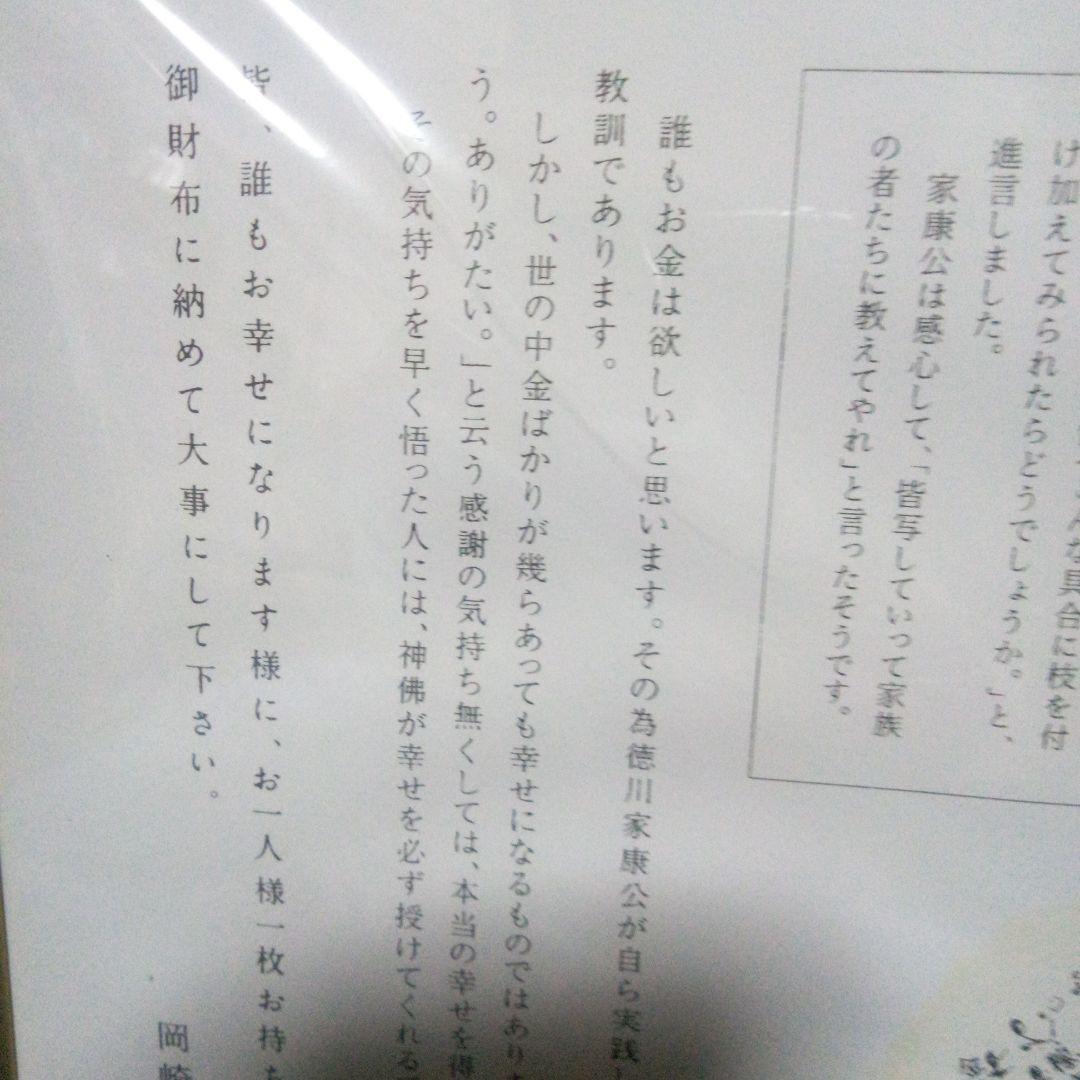 んな具合に枝を付
け加えてみられたらどうでしょうか。」と、
進言しました。
家康公は感心して、「皆写していって家族
の者たちに教えてやれ」と言ったそうです。
誰もお金は欲しいと思います。その為徳川家康公が自ら実践し
教訓であります。
しかし、世の中金ばかりが幾らあっても幸せになるものではあり
う。ありがたい。」と云う感謝の気持ち無くしては、本当の幸せを得
その気持ちを早く悟った人には、神佛が幸せを必ず授けてくれる
皆、誰もお幸せになります様に、お一人様一枚お持ち
御財布に納めて大事にして下さい。
岡崎